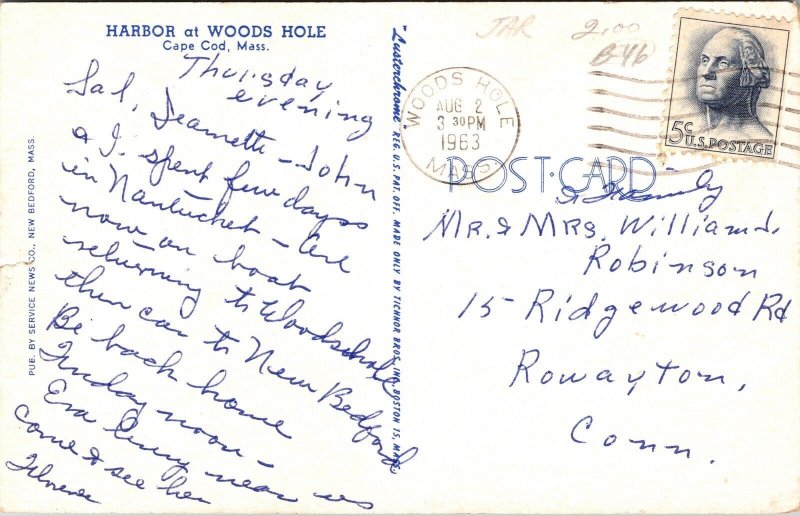 HARBOR at WOODS HOLE
Cape Cod, Mass.
Thursday
evening
Sal, Jeanette - John
& I spent few days
in Nantucket - are
now on boat
returning to Woodshole
then car to New Bedford
Be back home
Friday noon -
near us
come & see her
Florence
PUB. BY SERVICE NEWS CO., NEW BEDFORD, MASS.
"Lusterchrome" REG. U.S. PAT. OFF. MADE ONLY BY TICHNOR BROS., INC., BOSTON 15, MASS.
JAR 2.00
B46
WOODS HOLE
AUG 2
3 30 PM
1963
MASS.
5c U.S. POSTAGE
POST CARD
& Family
Mr. & Mrs. William J.
Robinson
15 Ridgewood Rd
Rowayton,
Conn.